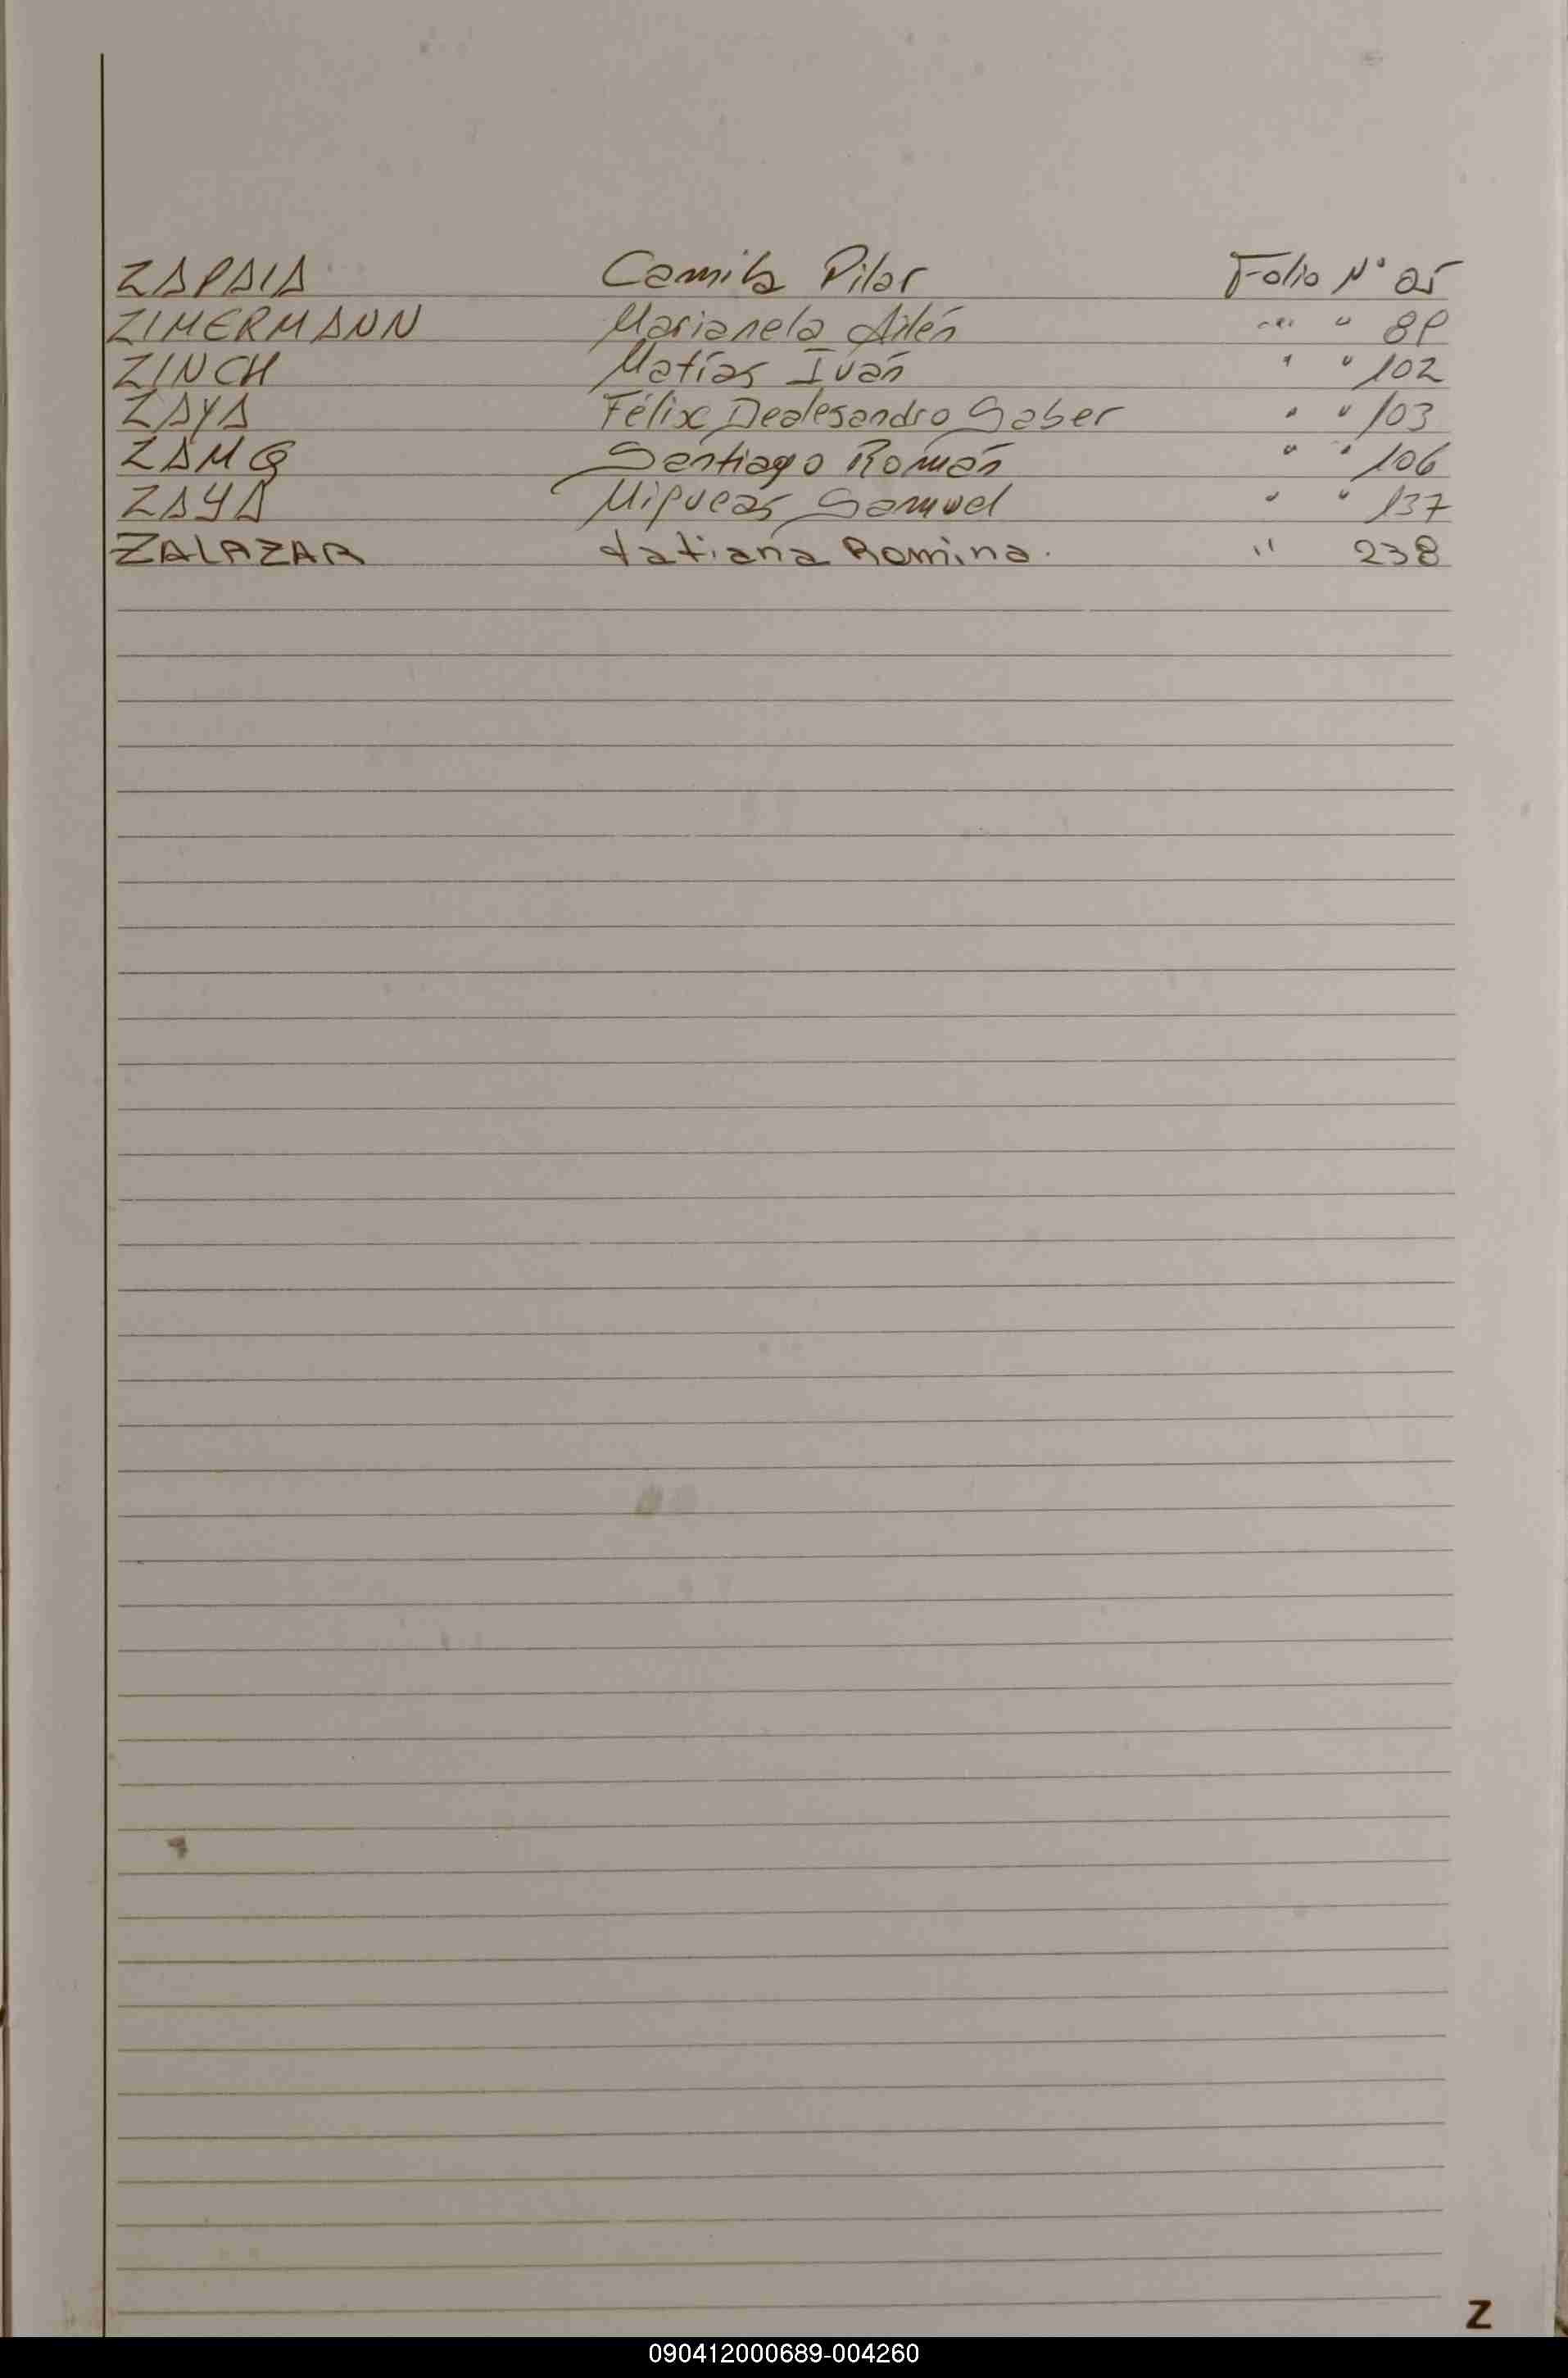 ZAPAIA Camila Pilar Folio Nº 05
ZIMERMANN Marianela Ailén " " 89
ZINCH Matías Iván " " 102
ZAYA Félix Dealesandro Gaber " " 103
Santiago Román " " 106
ZAYA Miqueas Samuel " " 137
ZALAZAR tatiana Romina. " 238
Z
090412000689-004260